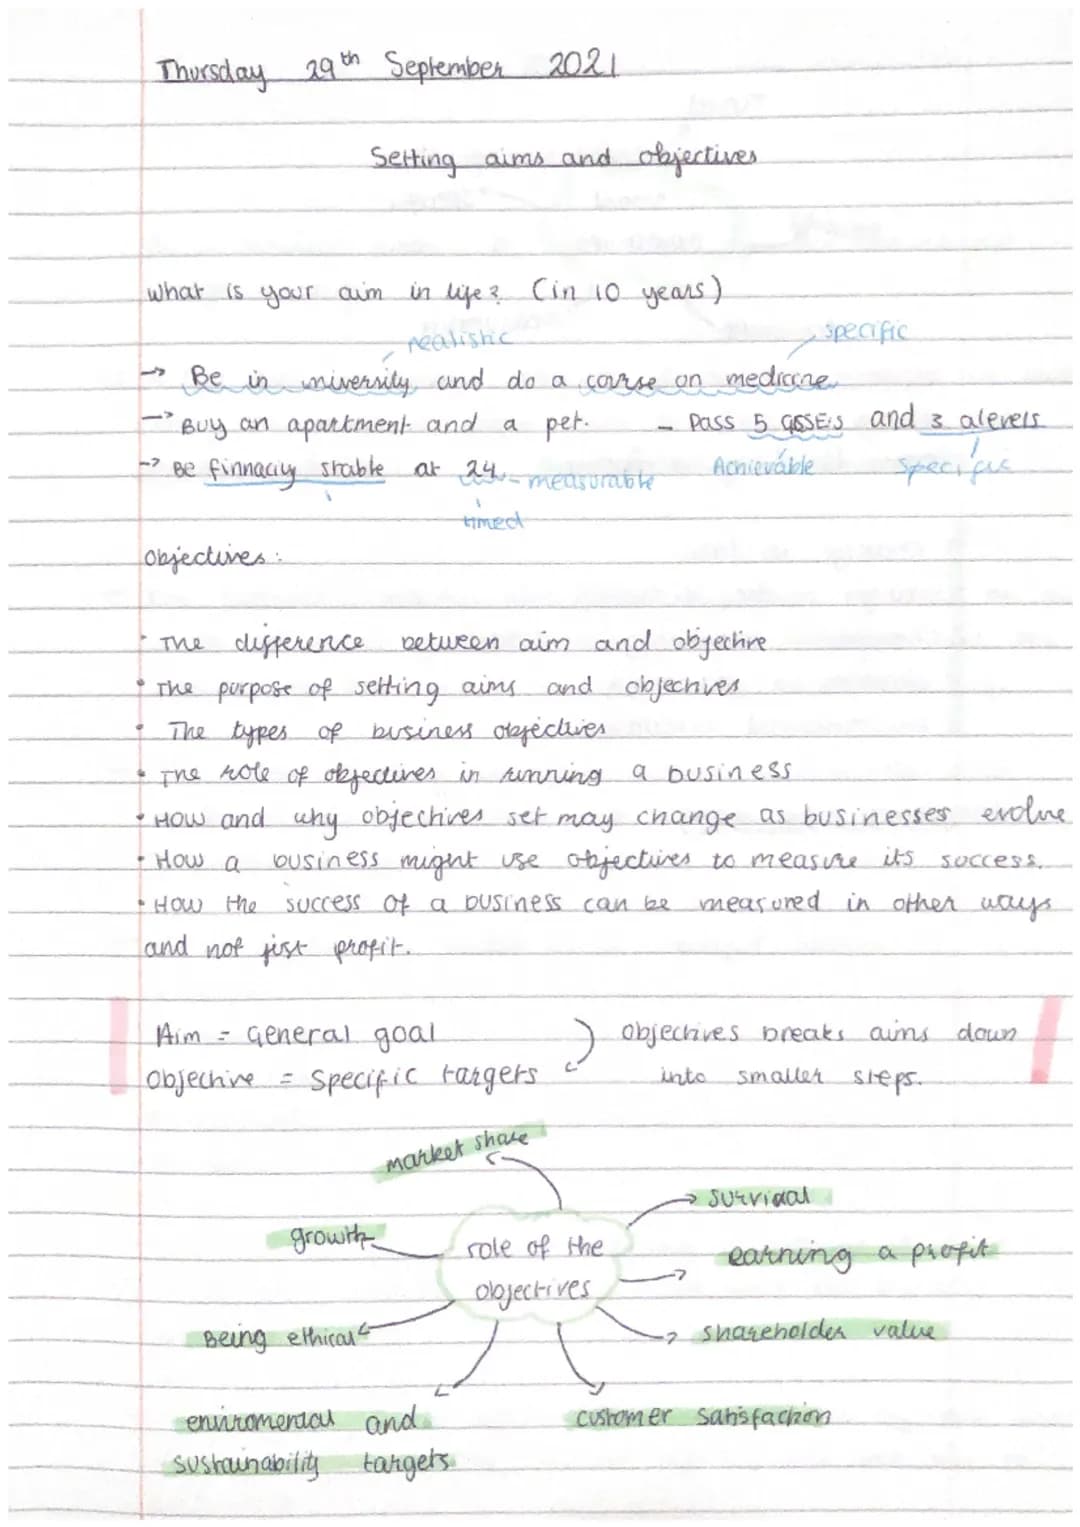 Thursday 29th September 2021
Setting aims and objectives
What is your aim in life? (in 10 years)
realistic
specific
→ Be in university and do a course on medicine
→ Buy an apartment and a pet.
- Pass 5 GSSE's and 3 alevels
→ Be finnaciy stable at 24 - measurable
Achievable
specific
timed
objectives:
• The difference between aim and objective
• The purpose of setting aims and objectives
• The types of business objectives
• The role of objectives in running a business
• How and why objectives set may change as businesses evolve
• How a business might use objectives to measure its success.
• How the success of a business can be measured in other ways
and not just profit.
Aim = General goal
Objective = Specific targets
objectives breaks aims down
into smaller steps.
market share
survival
growth
role of the
objectives
earning a profit
Being ethical
shareholder value
enviromental and
sustainability targets
customer satisfaction